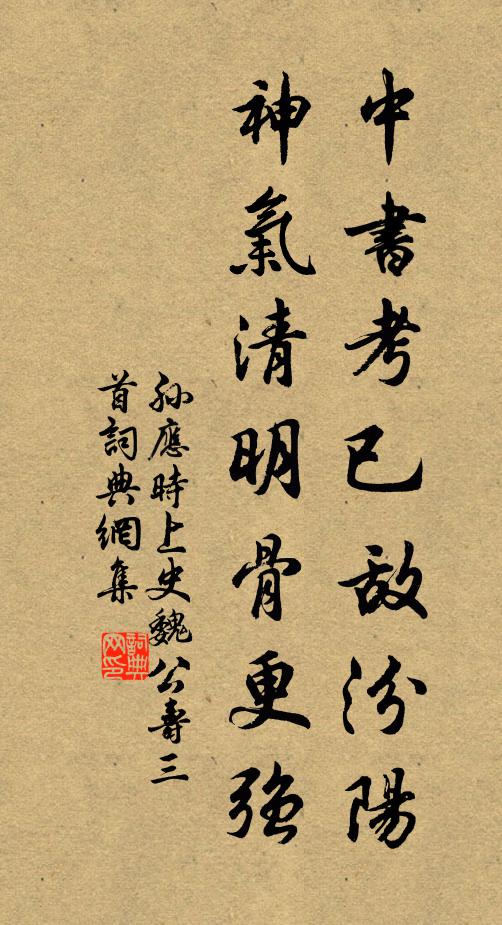 中書考已敵汾陽
神氣清明骨更強
孫應時上史魏公壽三
首詞典網集
詞典
网印